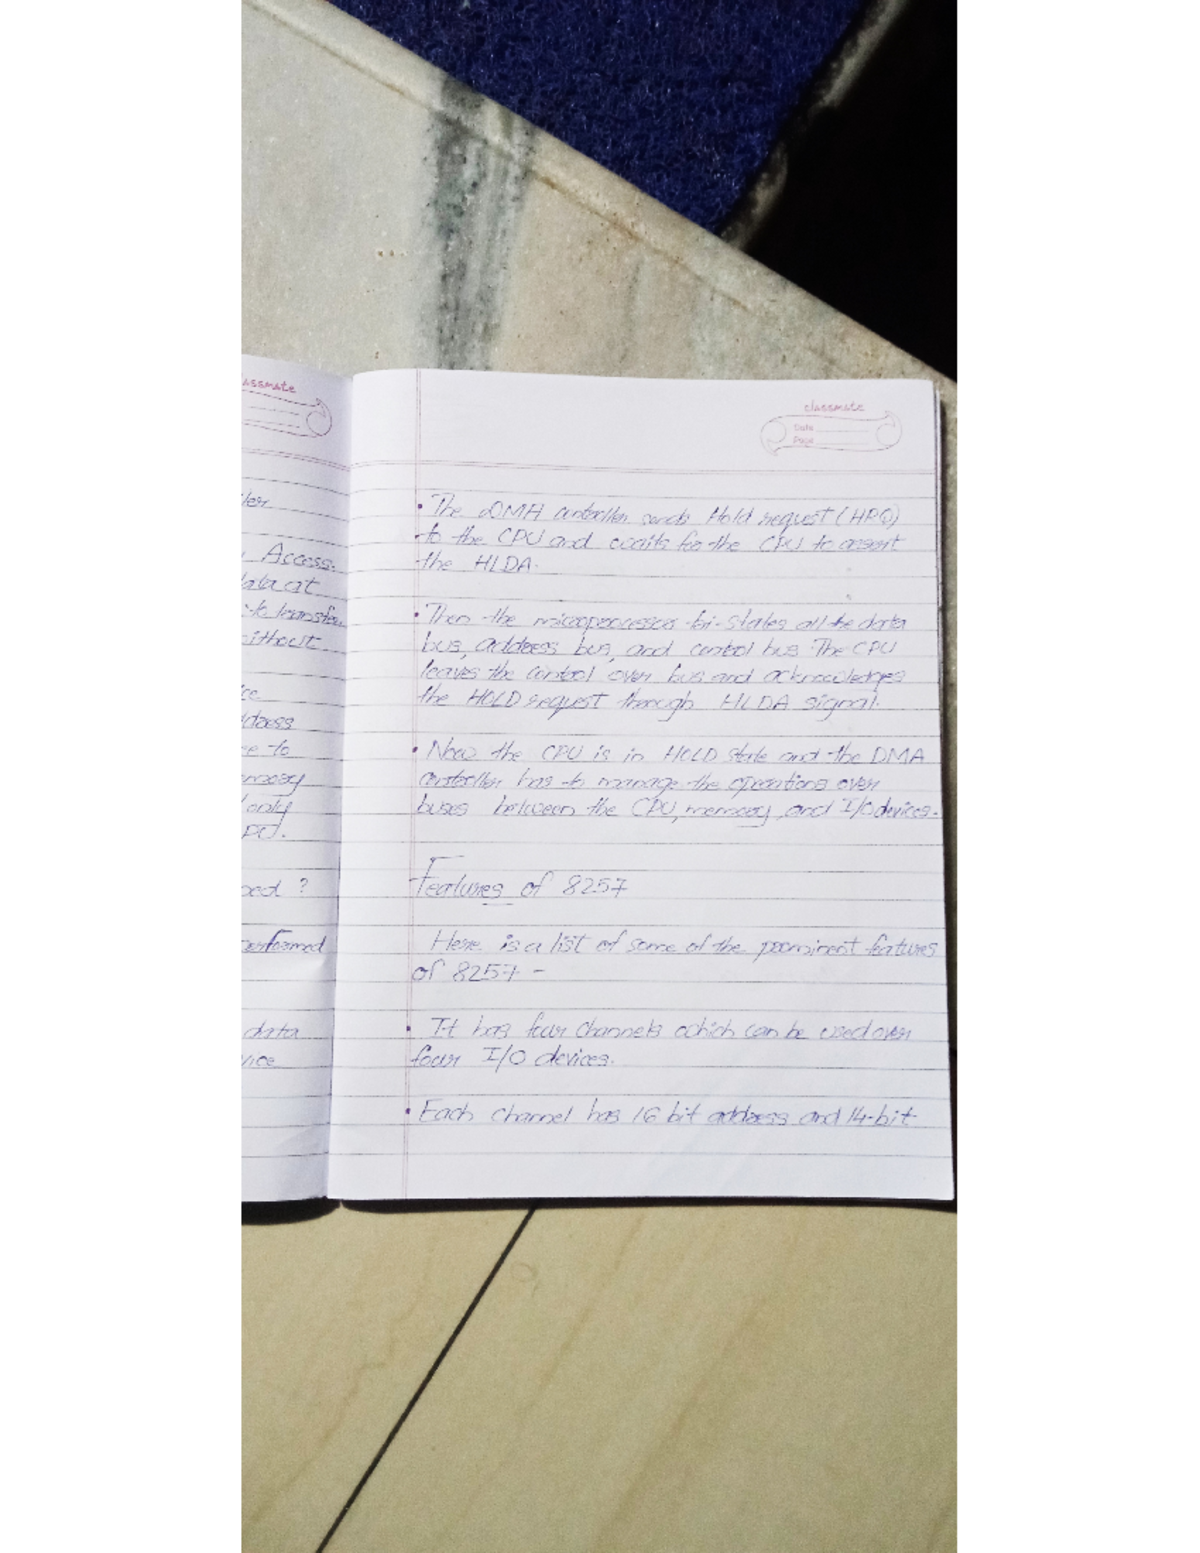 assmate
ler
Access.
data at
to transfer
without
ce
ddress
e to
emory
only
PU.
sed ?
performed
data
vice
classmate
Date
Page
• The DMA controller sends Hold request (HRQ)
to the CPU and waits for the CPU to assert
the HLDA.
• Then the microprocessor tri-states all the data
bus, address bus, and control bus. The CPU
leaves the control over bus and acknowledges
the HOLD request through HLDA signal.
• Now the CPU is in HOLD state and the DMA
controller has to manage the operations over
buses between the CPU, memory, and I/O devices.
Features of 8257
Here is a list of some of the prominent features
of 8257 -
• It has four channels which can be used over
four I/O devices.
• Each channel has 16 bit address and 14-bit